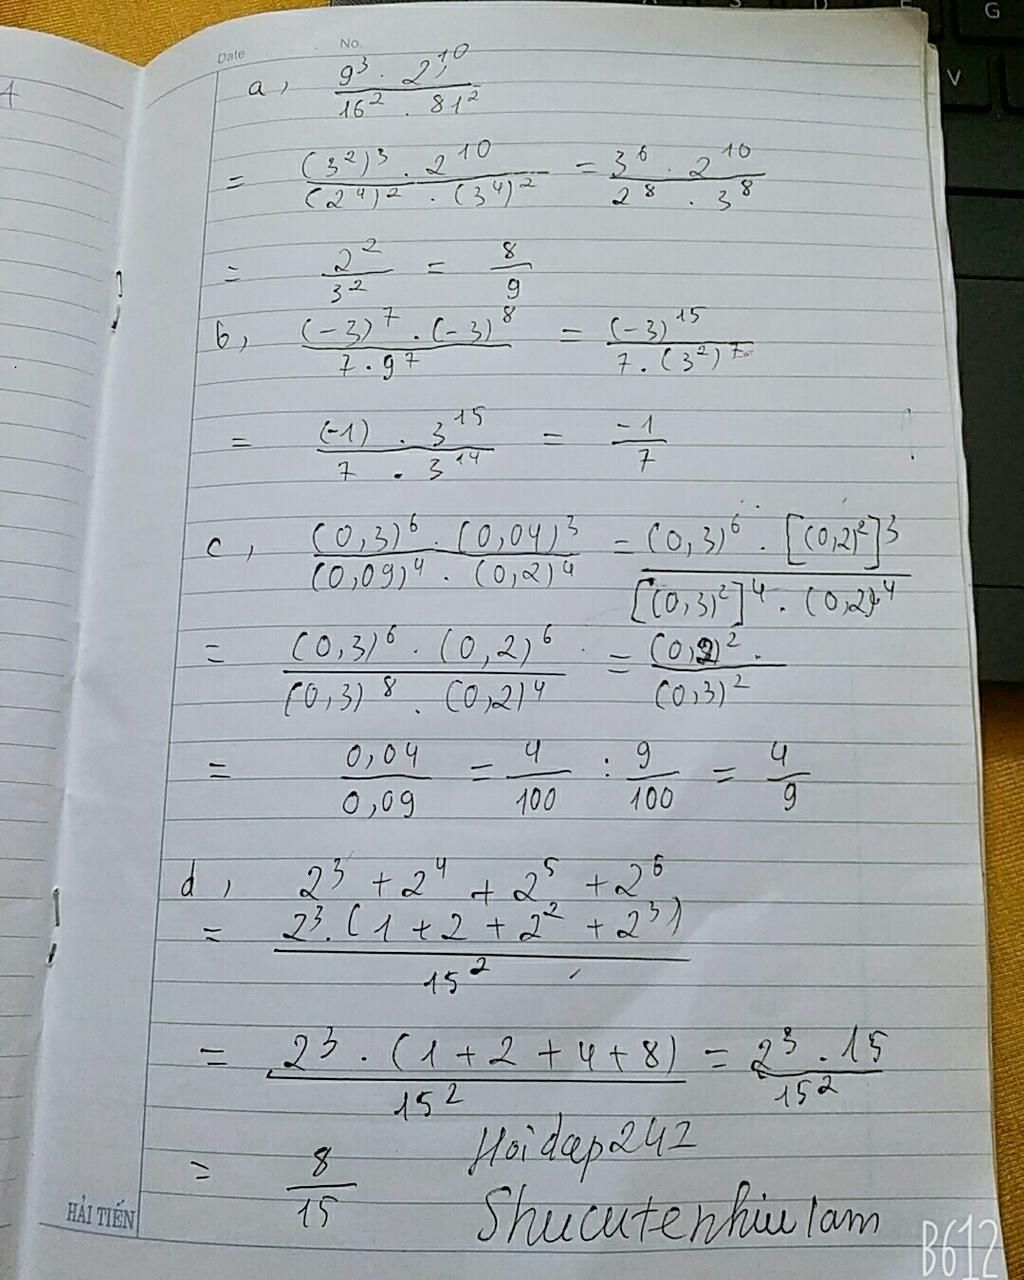 Date No.
a, 9³ . 2¹⁰ / 16² . 81²
= (3²)³ . 2¹⁰ / (2⁴)² . (3⁴)² = 3⁶ . 2¹⁰ / 2⁸ . 3⁸
= 2² / 3² = 8 / 9
b, (-3)⁷ . (-3)⁸ / 7 . 9⁷ = (-3)¹⁵ / 7 . (3²)⁷
= (-1) . 3¹⁵ / 7 . 3¹⁴ = -1 / 7
c, (0,3)⁶ . (0,04)³ / (0,09)⁴ . (0,2)⁴ = (0,3)⁶ . [(0,2)²]³ / [(0,3)²]⁴ . (0,2)⁴
= (0,3)⁶ . (0,2)⁶ / (0,3)⁸ . (0,2)⁴ = (0,2)² / (0,3)²
= 0,04 / 0,09 = 4 / 100 : 9 / 100 = 4 / 9
d, 2³ + 2⁴ + 2⁵ + 2⁶
= 2³ . (1 + 2 + 2² + 2³) / 15²
= 2³ . (1 + 2 + 4 + 8) / 15² = 2³ . 15 / 15²
= 8 / 15
Hoidap247
Shucutenhiulam
HẢI TIẾN
B612
V
G